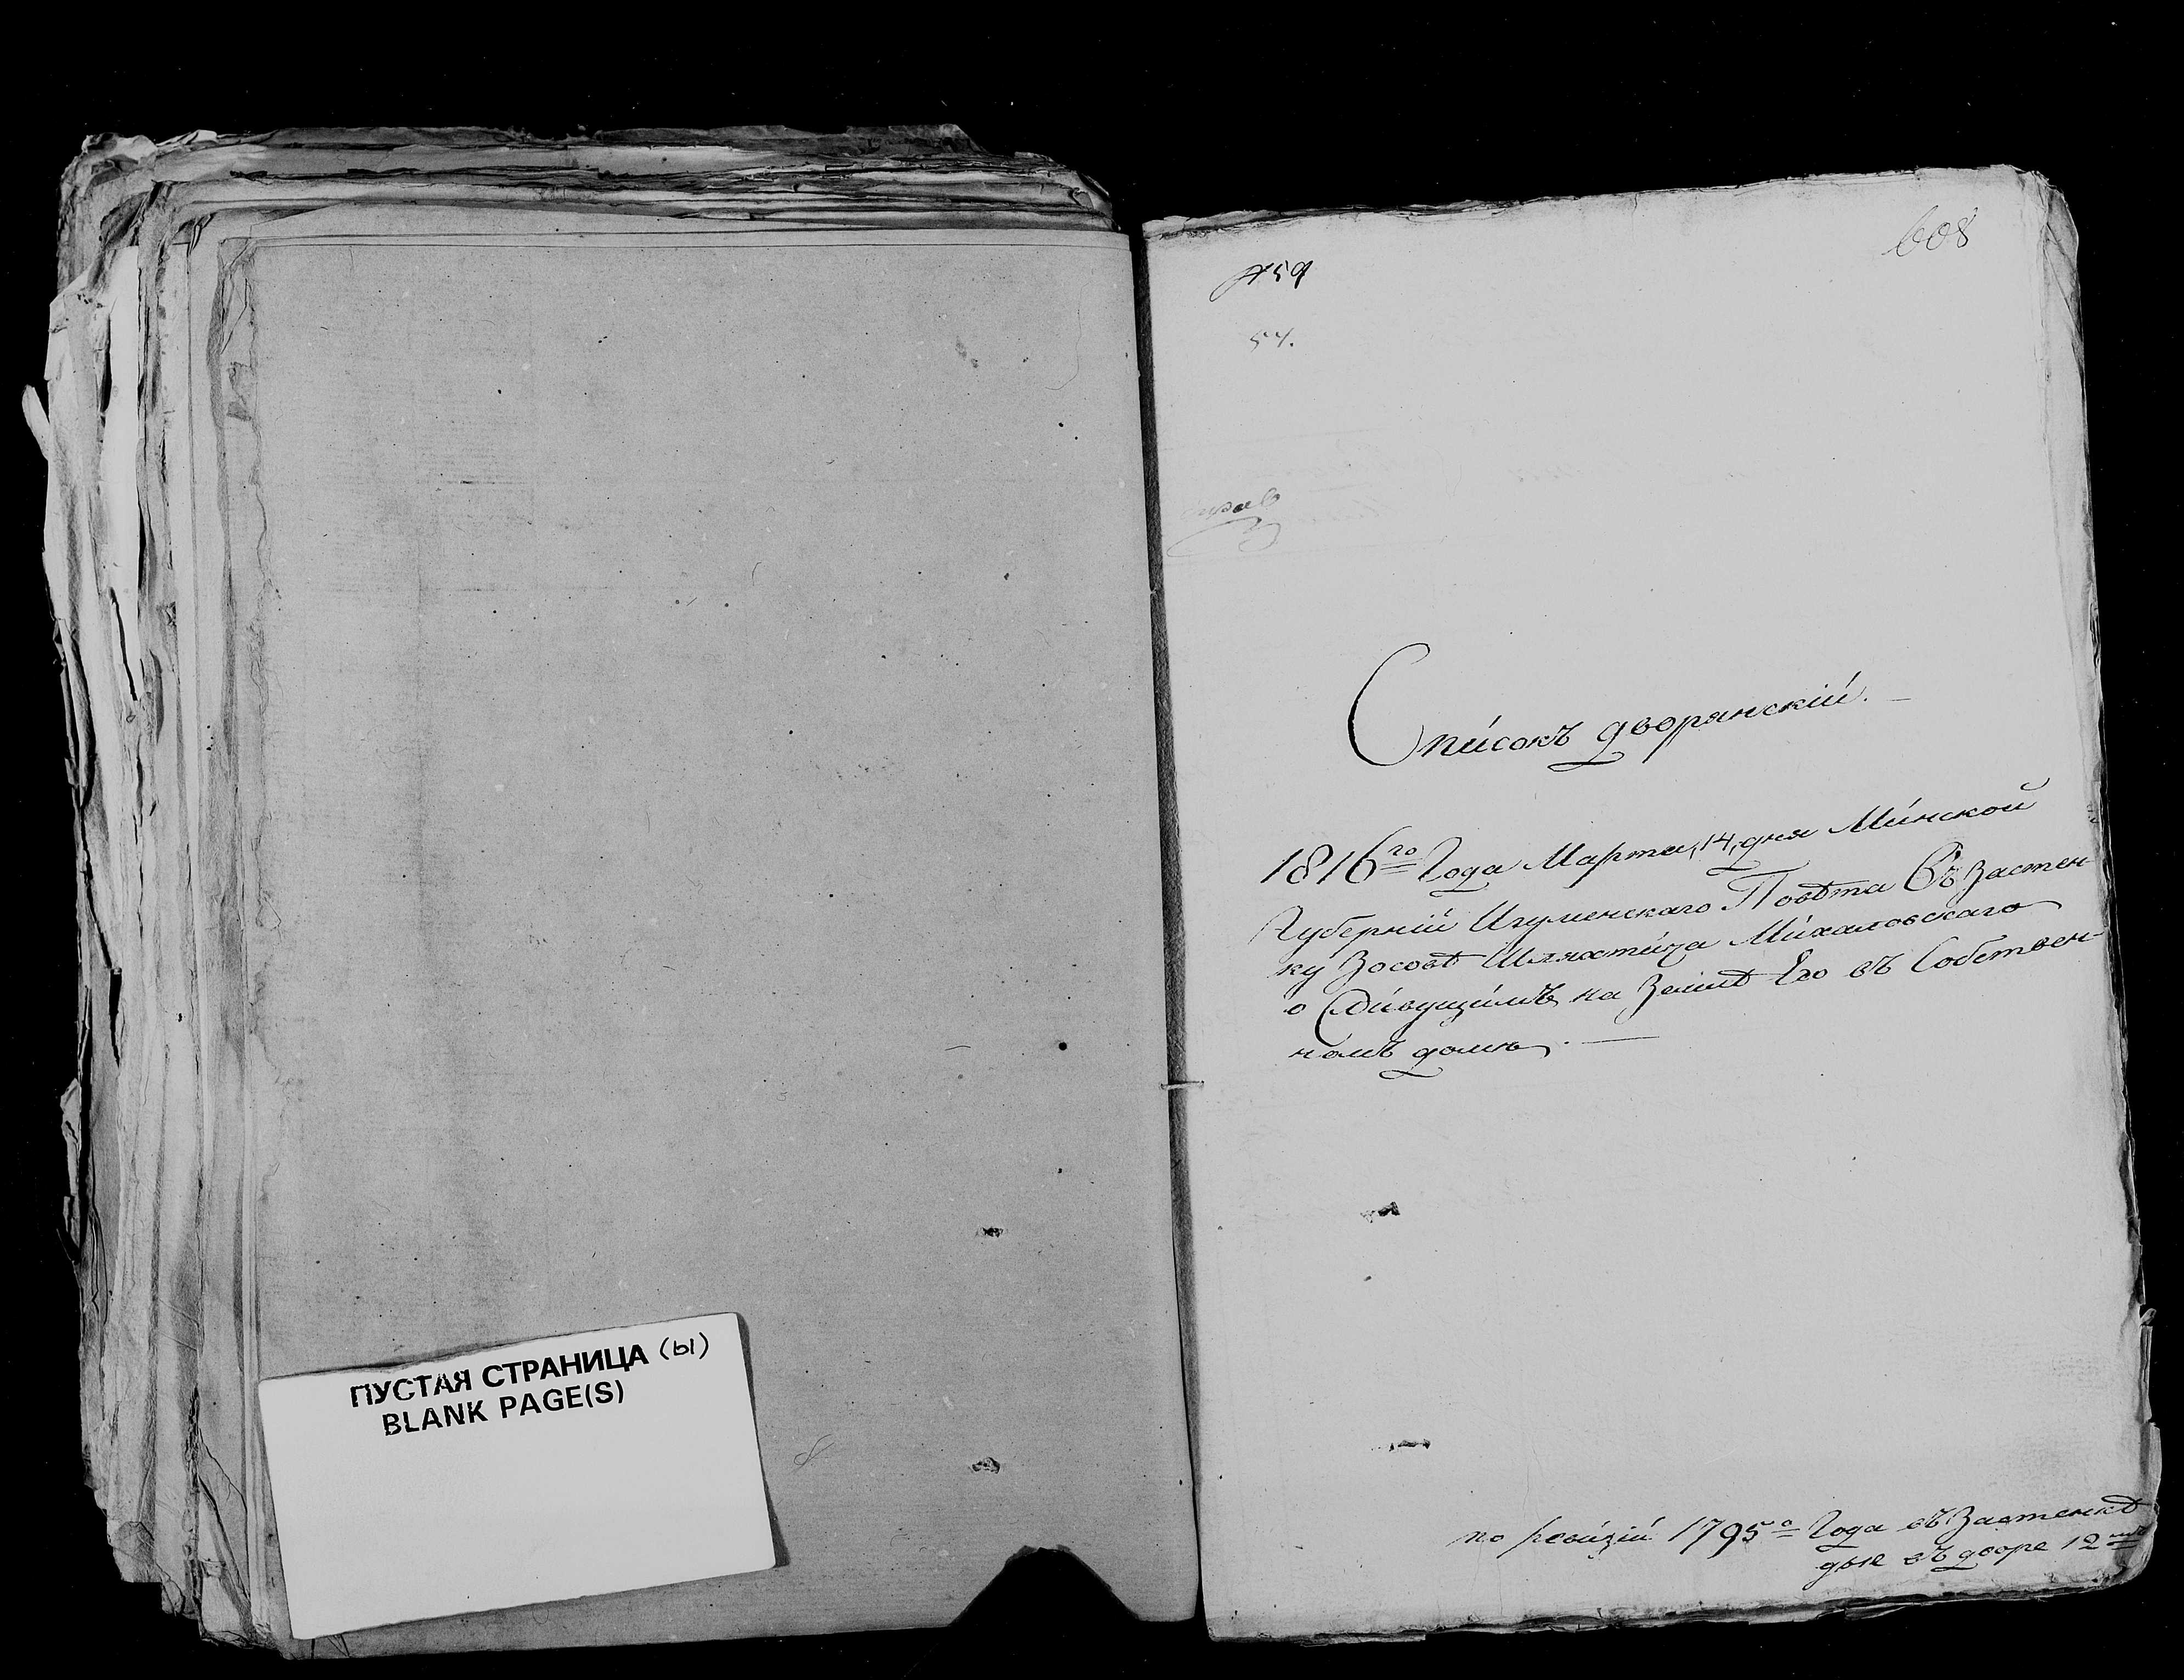 ПУСТАЯ СТРАНИЦА (Ы)
BLANK PAGE(S)
608
№ 59
54.
Списокъ дворянскій. –
1816го Года Марта, 14, дня Минской
Губерніи Игуменскаго Повѣта Въ Застен-
ку Зосовѣ Шляхтича Михаловскаго
о Живущимъ на Землѣ Его въ Собствен-
номъ домѣ. —
по ревизіи 1795о Года въ Застенкѣ
въ дворе 12